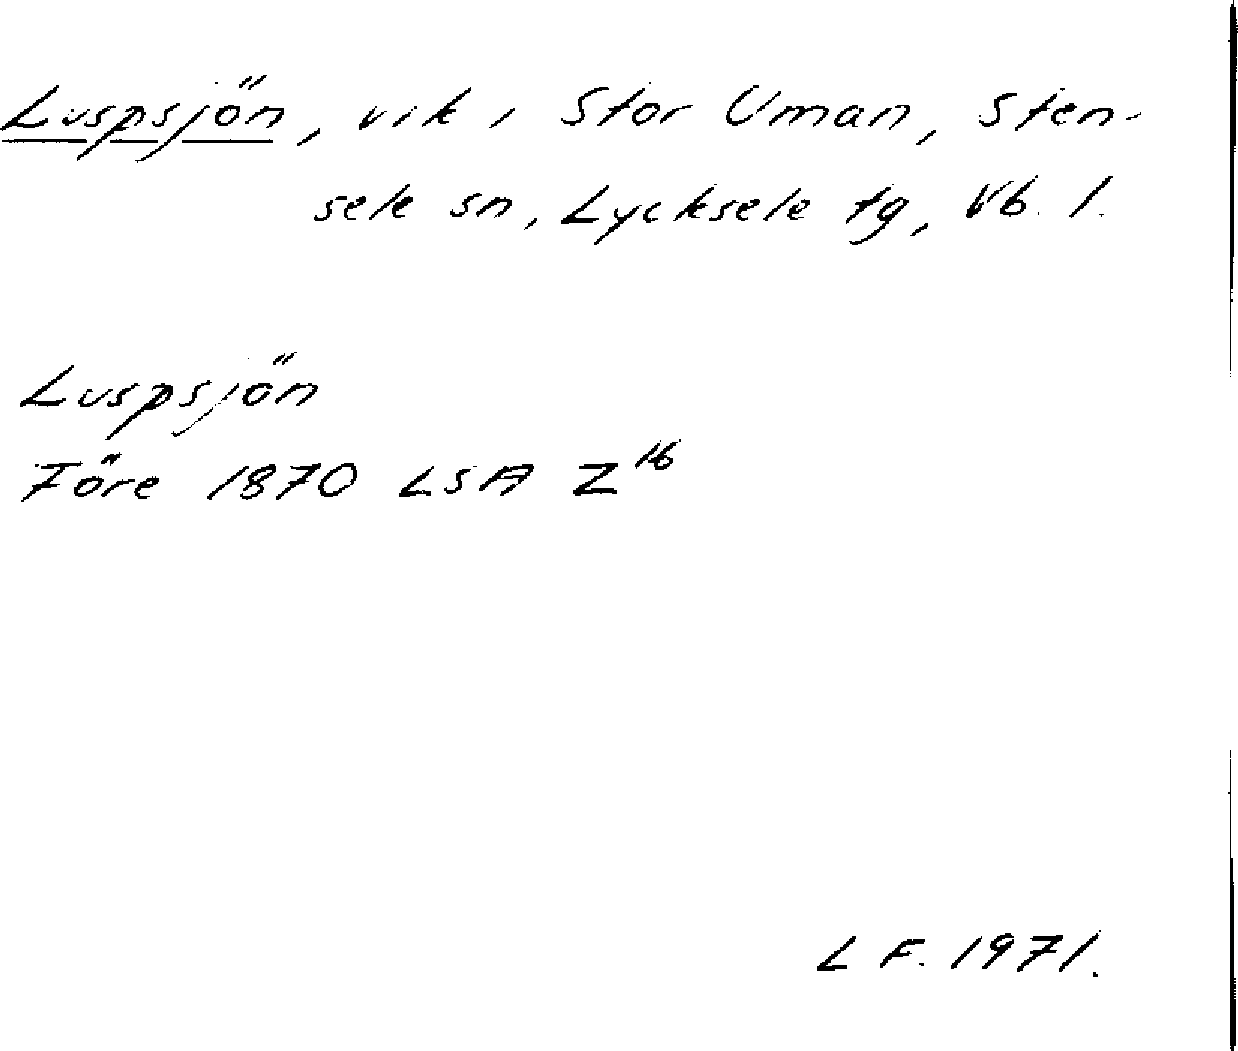 Luspsjön, vik i Stor Uman, Sten-
sele sn, Lycksele tg, Vb. l.
Luspsjön
Före 1870 LSA Z¹⁶
L F. 1971.